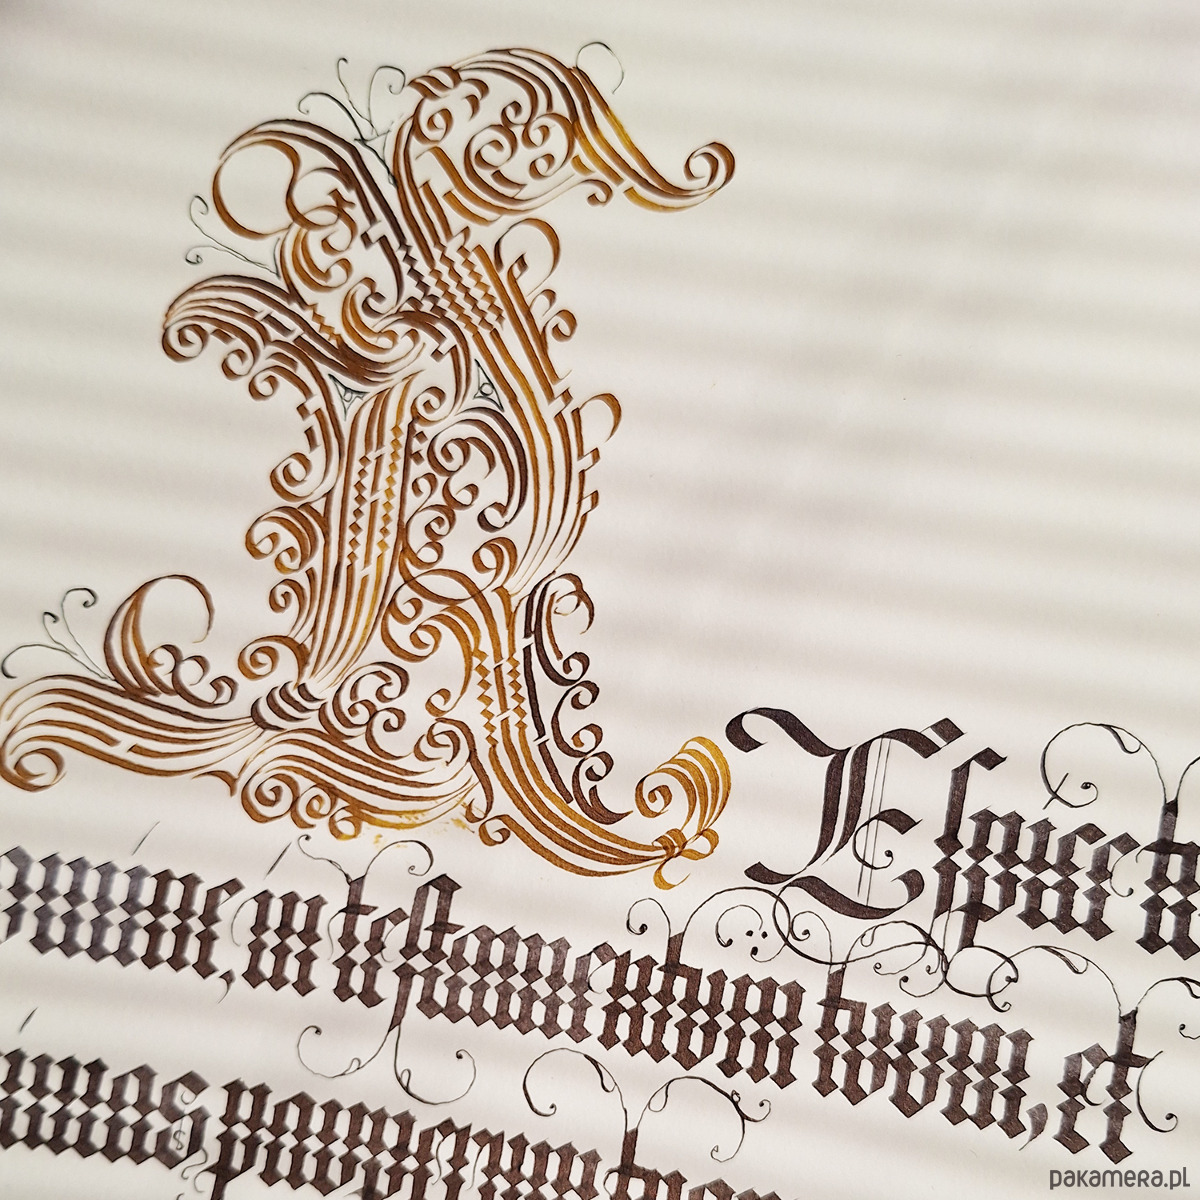 REſpice
in teſtamentum tuum, et
pauperum
pakamera.pl